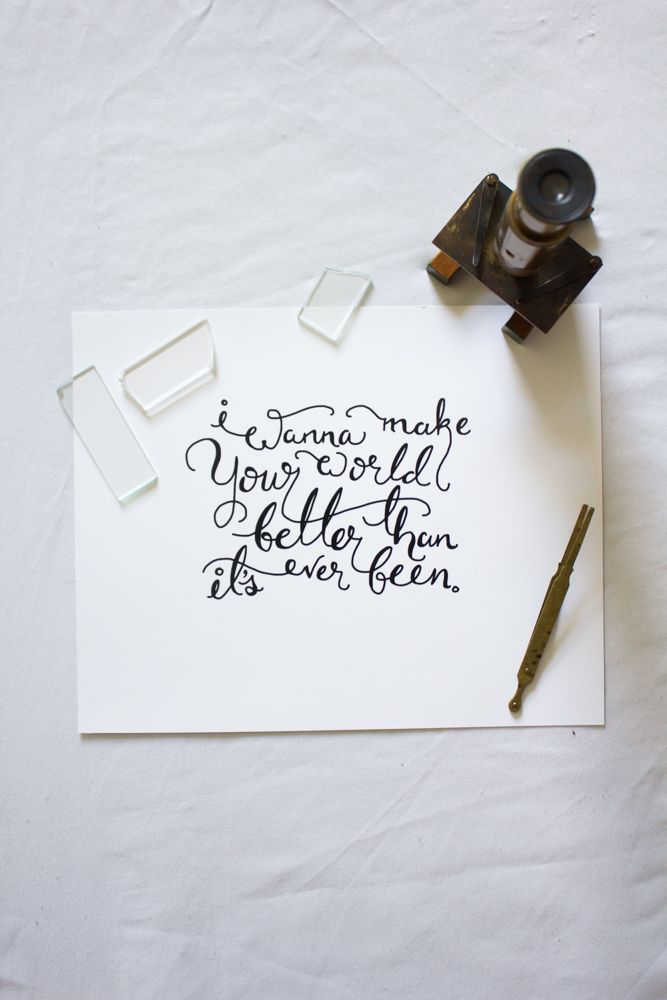 i wanna make
Your world
better than
it's ever been.